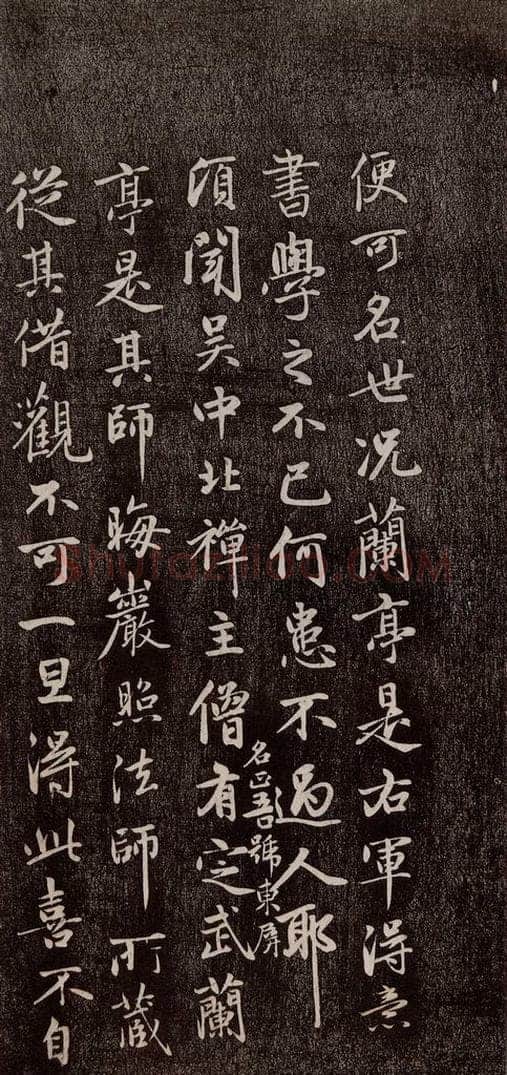 便可名世况蘭亭是右軍得意
書學之不已何患不過人耶
頃聞吴中北禪主僧有定武蘭
名正吾號東屏
亭是其師晦巖照法師所藏
從其借觀不可一旦得此喜不自